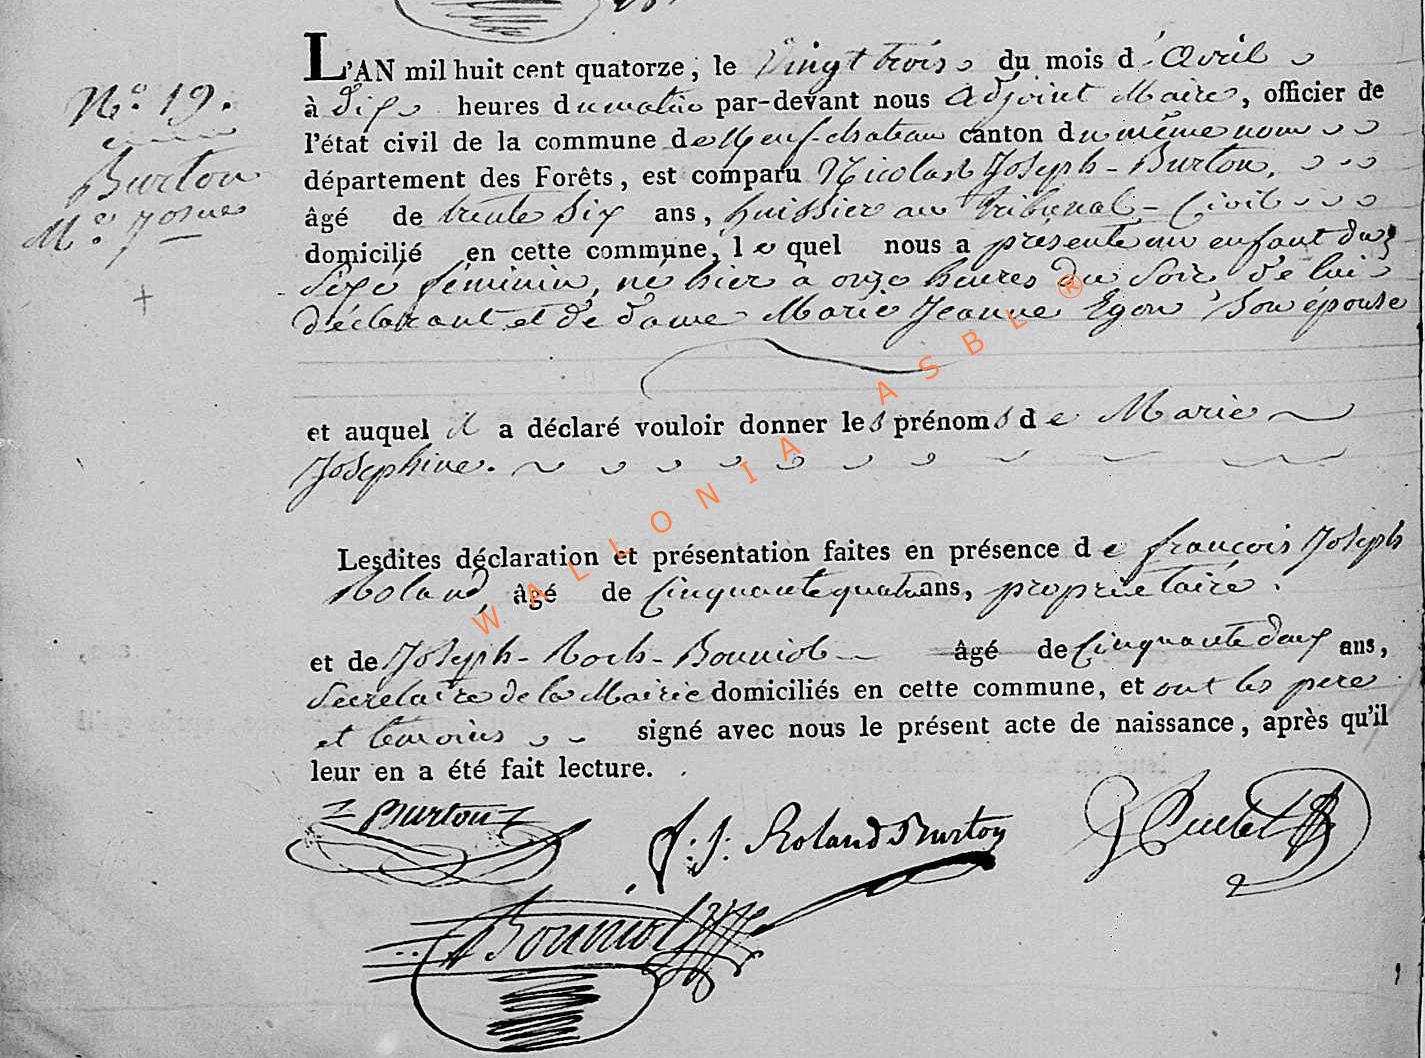 N.º 19.
Burton
M.e Josne
L'AN mil huit cent quatorze, le Vingt trois du mois d'Avril
à Dix heures du matin par-devant nous Adjoint Maire, officier de
l'état civil de la commune de Neufchateau canton du même nom
département des Forêts, est comparu Nicolas Joseph-Burton,
âgé de trente Six ans, huissier au Tribunal-Civil
domicilié en cette commune, lequel nous a presenté un enfant du
Sexe féminin, né hier à onze heures du Soir de lui
déclarant et de dame Marie Jeanne Egon Son épouse
et auquel il a déclaré vouloir donner les prénoms de Marie
Josephine.
Lesdites déclaration et présentation faites en présence de françois Joseph
Roland âgé de Cinquante quatre ans, proprietaire.
et de Joseph-Roch-Bonniol âgé de Cinquante deux ans,
Secretaire de la Mairie domiciliés en cette commune, et ont les pere
et temoins signé avec nous le présent acte de naissance, après qu'il
leur en a été fait lecture.
Burton
f: J: Roland Burton
Bonniol
WALLONIA ASBL ®